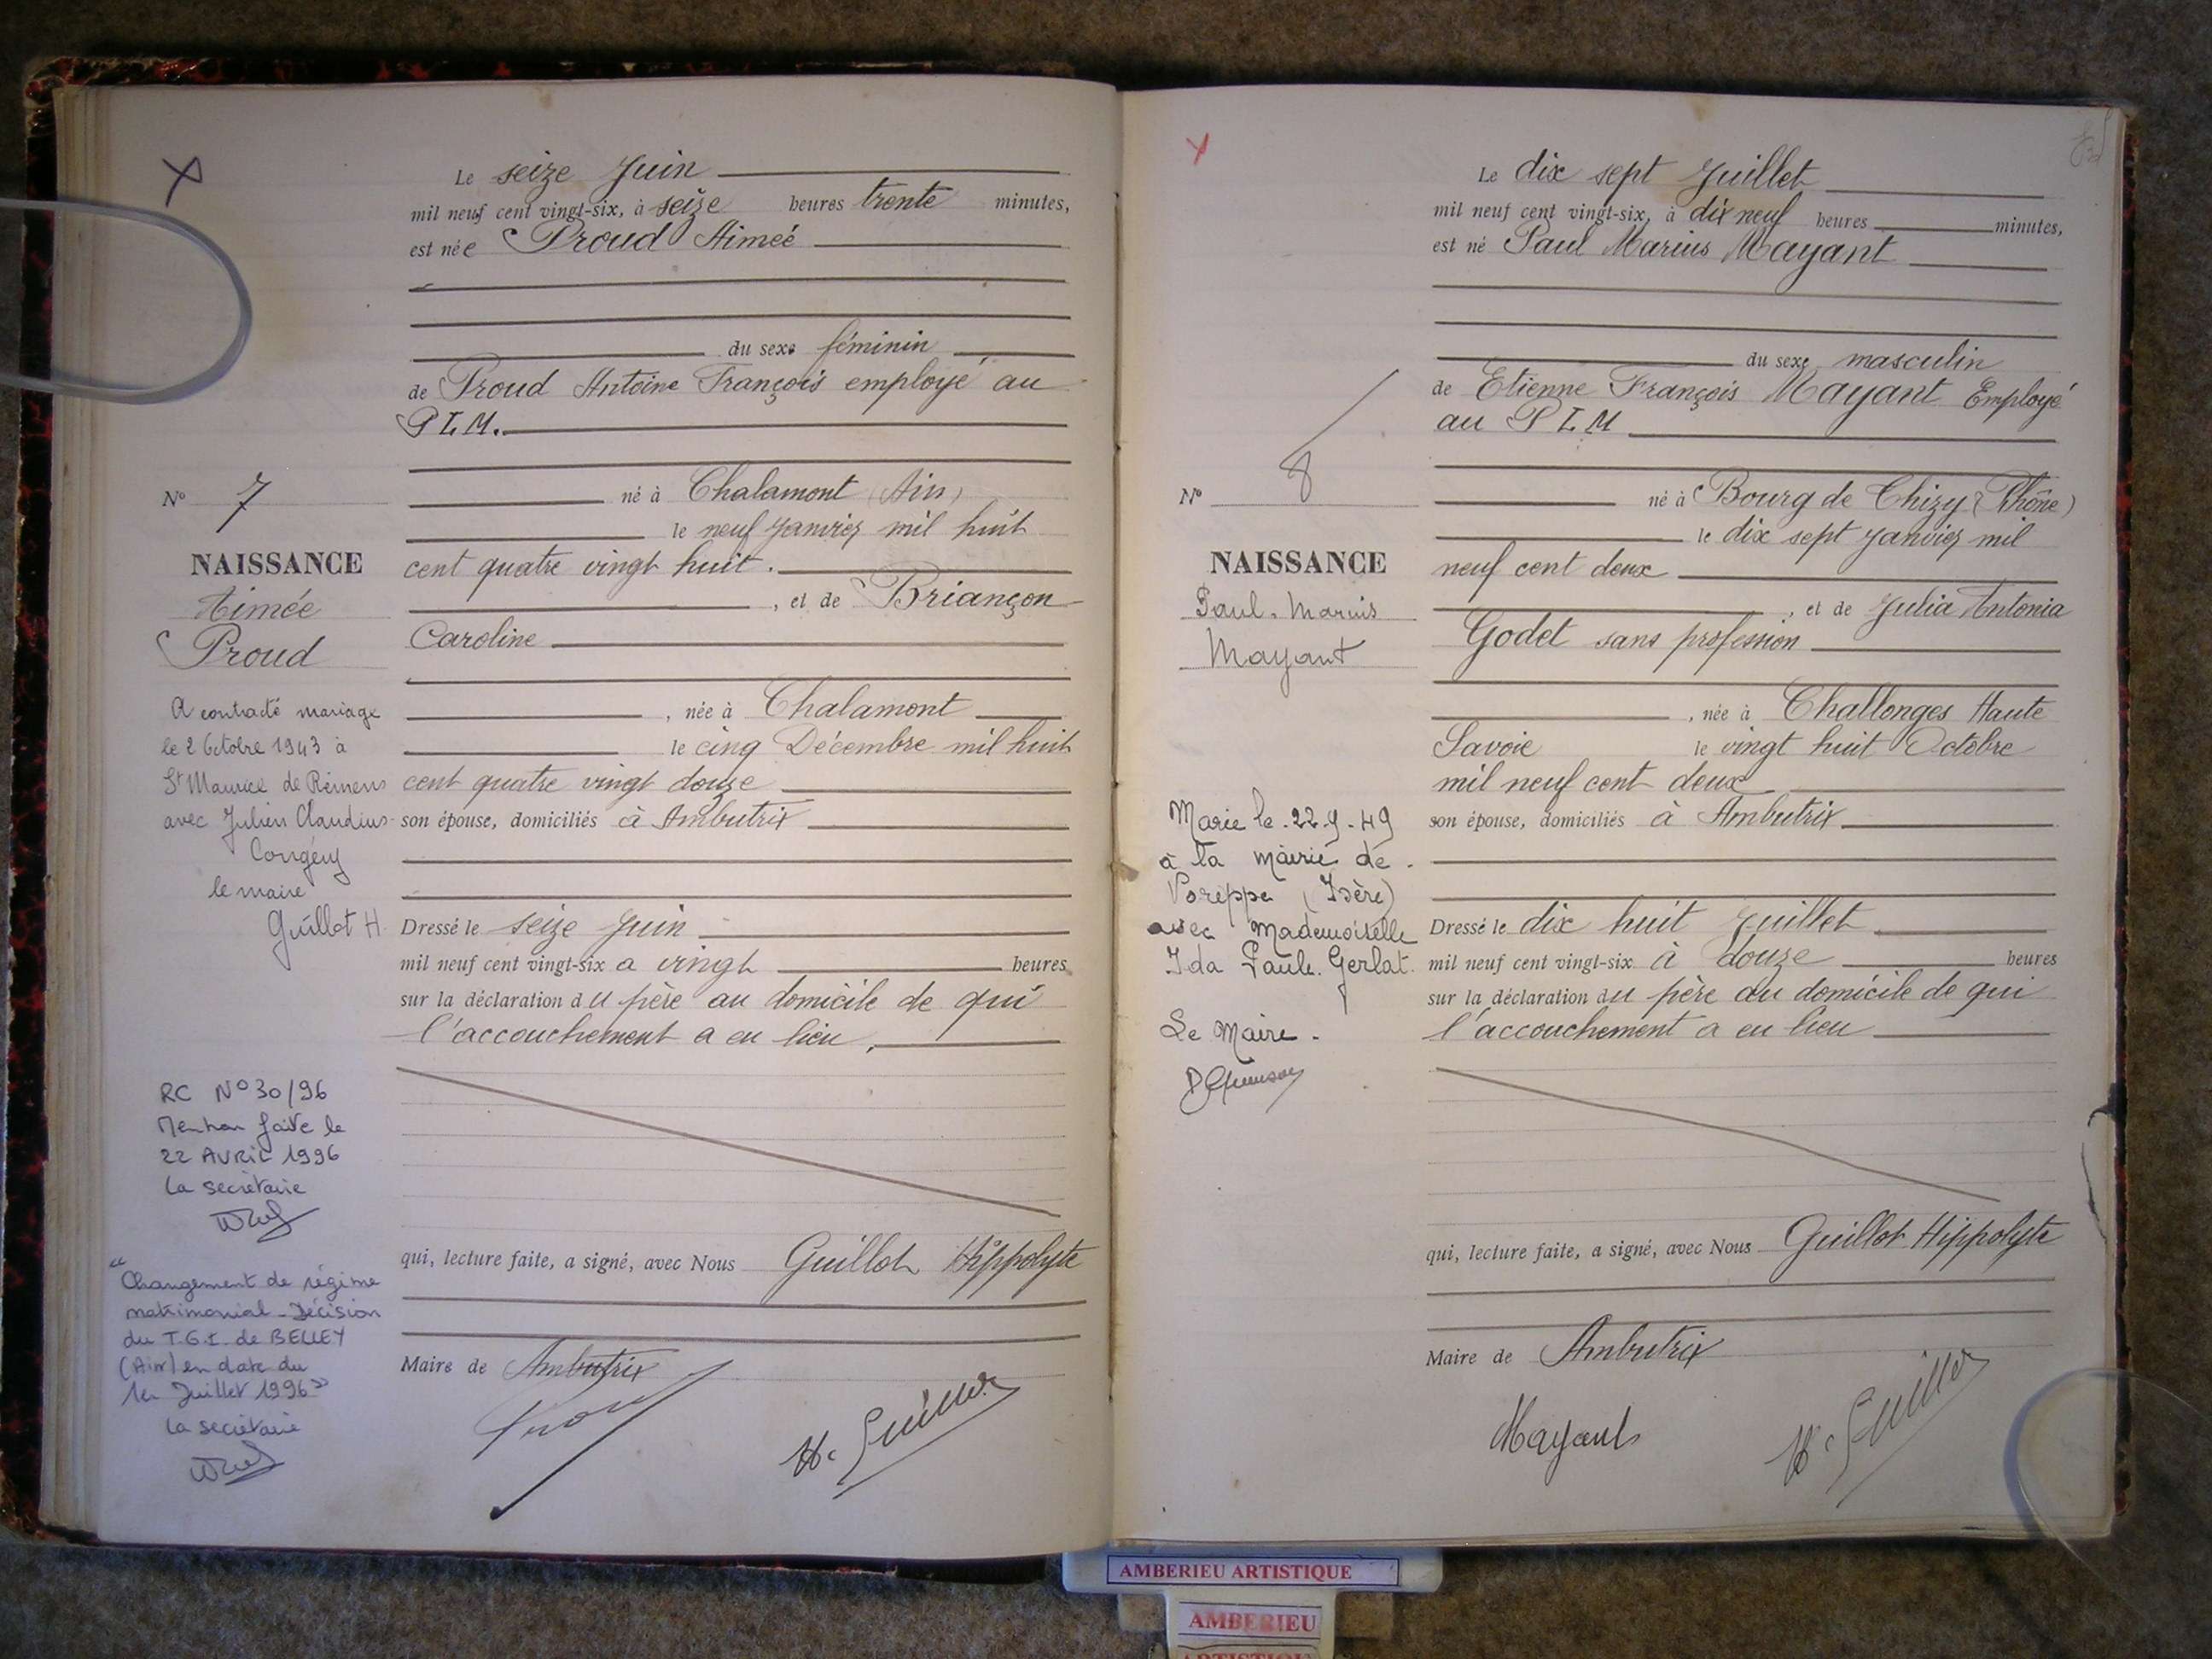 Le seize Juin
mil neuf cent vingt-six, à seize heures trente minutes,
est née Proud Aimeé
du sexe féminin
de Proud Antoine François employé au
P L M.
né à Chalamont (Ain)
le neuf Janvier mil huit
cent quatre vingt huit.
, et de Briançon
Caroline
, née à Chalamont
le cinq Décembre mil huit
cent quatre vingt douze
son épouse, domiciliés à Ambutrix
Dressé le seize Juin
mil neuf cent vingt-six a vingt heures
sur la déclaration du père au domicile de qui
l'accouchement a eu lieu,
qui, lecture faite, a signé, avec Nous Guillot Hippolyte
Maire de Ambutrix
H. Guillot
N° 7
NAISSANCE
Aimée
Proud
A contracté mariage
le 2 Octobre 1943 à
St Maurice de Rémens
avec Julien Claudius
Congéry
le maire
Guillot H
RC N° 30/96
Mention faite le
22 AVRIL 1996
La secrétaire
"Changement de régime
matrimonial - Décision
du T.G.I. de BELLEY
(Ain) en date du
1er Juillet 1996"
La secrétaire
Le dix sept Juillet
mil neuf cent vingt-six, à dix neuf heures minutes,
est né Paul Marius Mayant
du sexe masculin
de Etienne François Mayant Employé
au P L M
né à Bourg de Thizy (Rhône)
le dix sept Janvier mil
neuf cent deux
, et de Julia Antonia
Godet sans profession
, née à Challonges Haute
Savoie le vingt huit Octobre
mil neuf cent deux
son épouse, domiciliés à Ambutrix
Dressé le dix huit Juillet
mil neuf cent vingt-six à douze heures
sur la déclaration du père au domicile de qui
l'accouchement a eu lieu
qui, lecture faite, a signé, avec Nous Guillot Hippolyte
Maire de Ambutrix
Mayant
H. Guillot
N° 8
NAISSANCE
Paul-Marius
Mayant
Marié le 22-9-49
à la mairie de
Voreppe (Isère)
avec Mademoiselle
Ida Paule Gerlat.
Le Maire.
AMBERIEU ARTISTIQUE
AMBERIEU
ARTISTIQUE